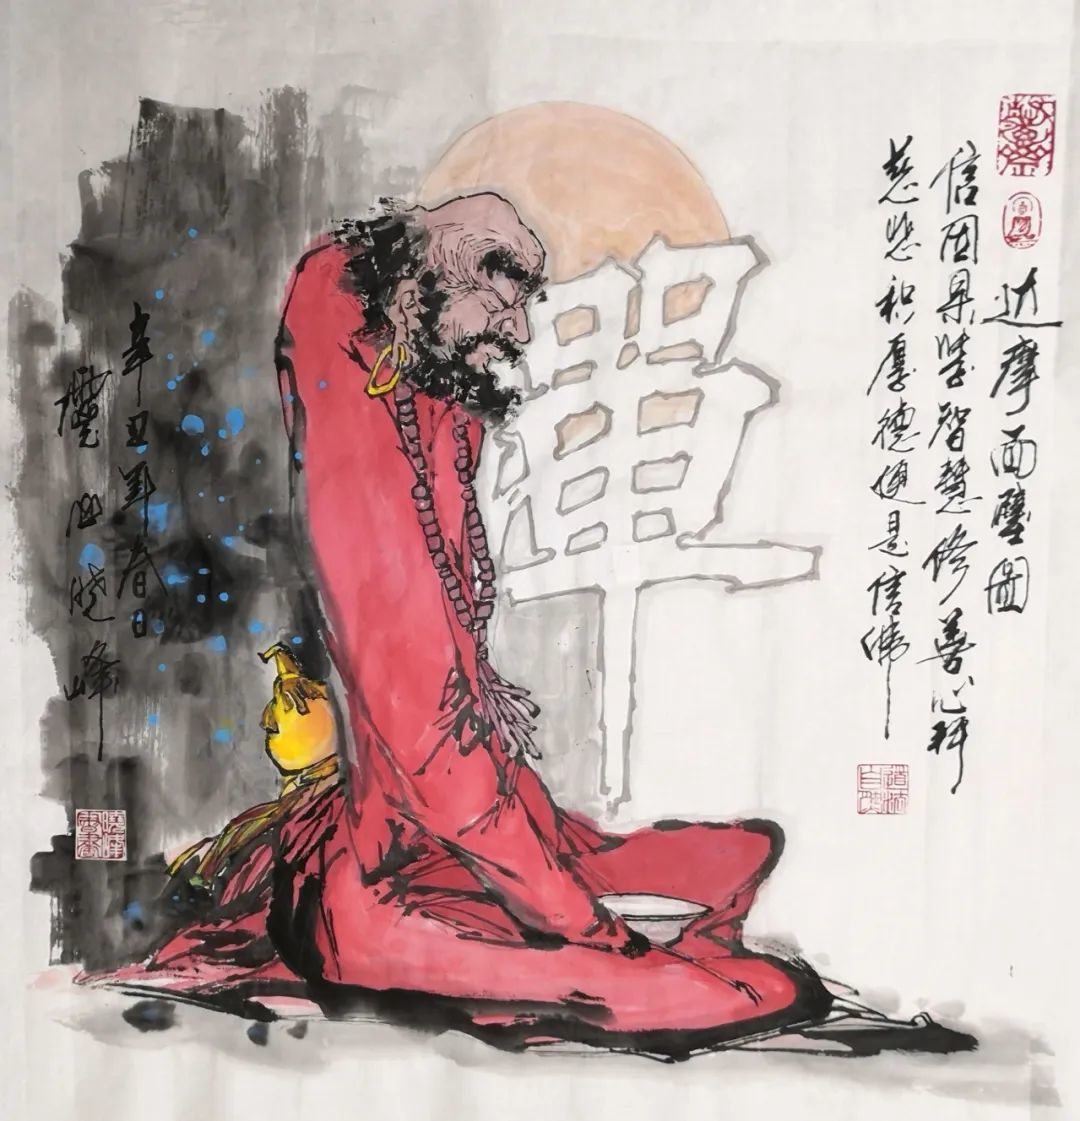 达摩面壁圖
信因果學智慧修善心
慈悲积厚德便是信佛
道法自然
單
辛丑年春日
山晓峰